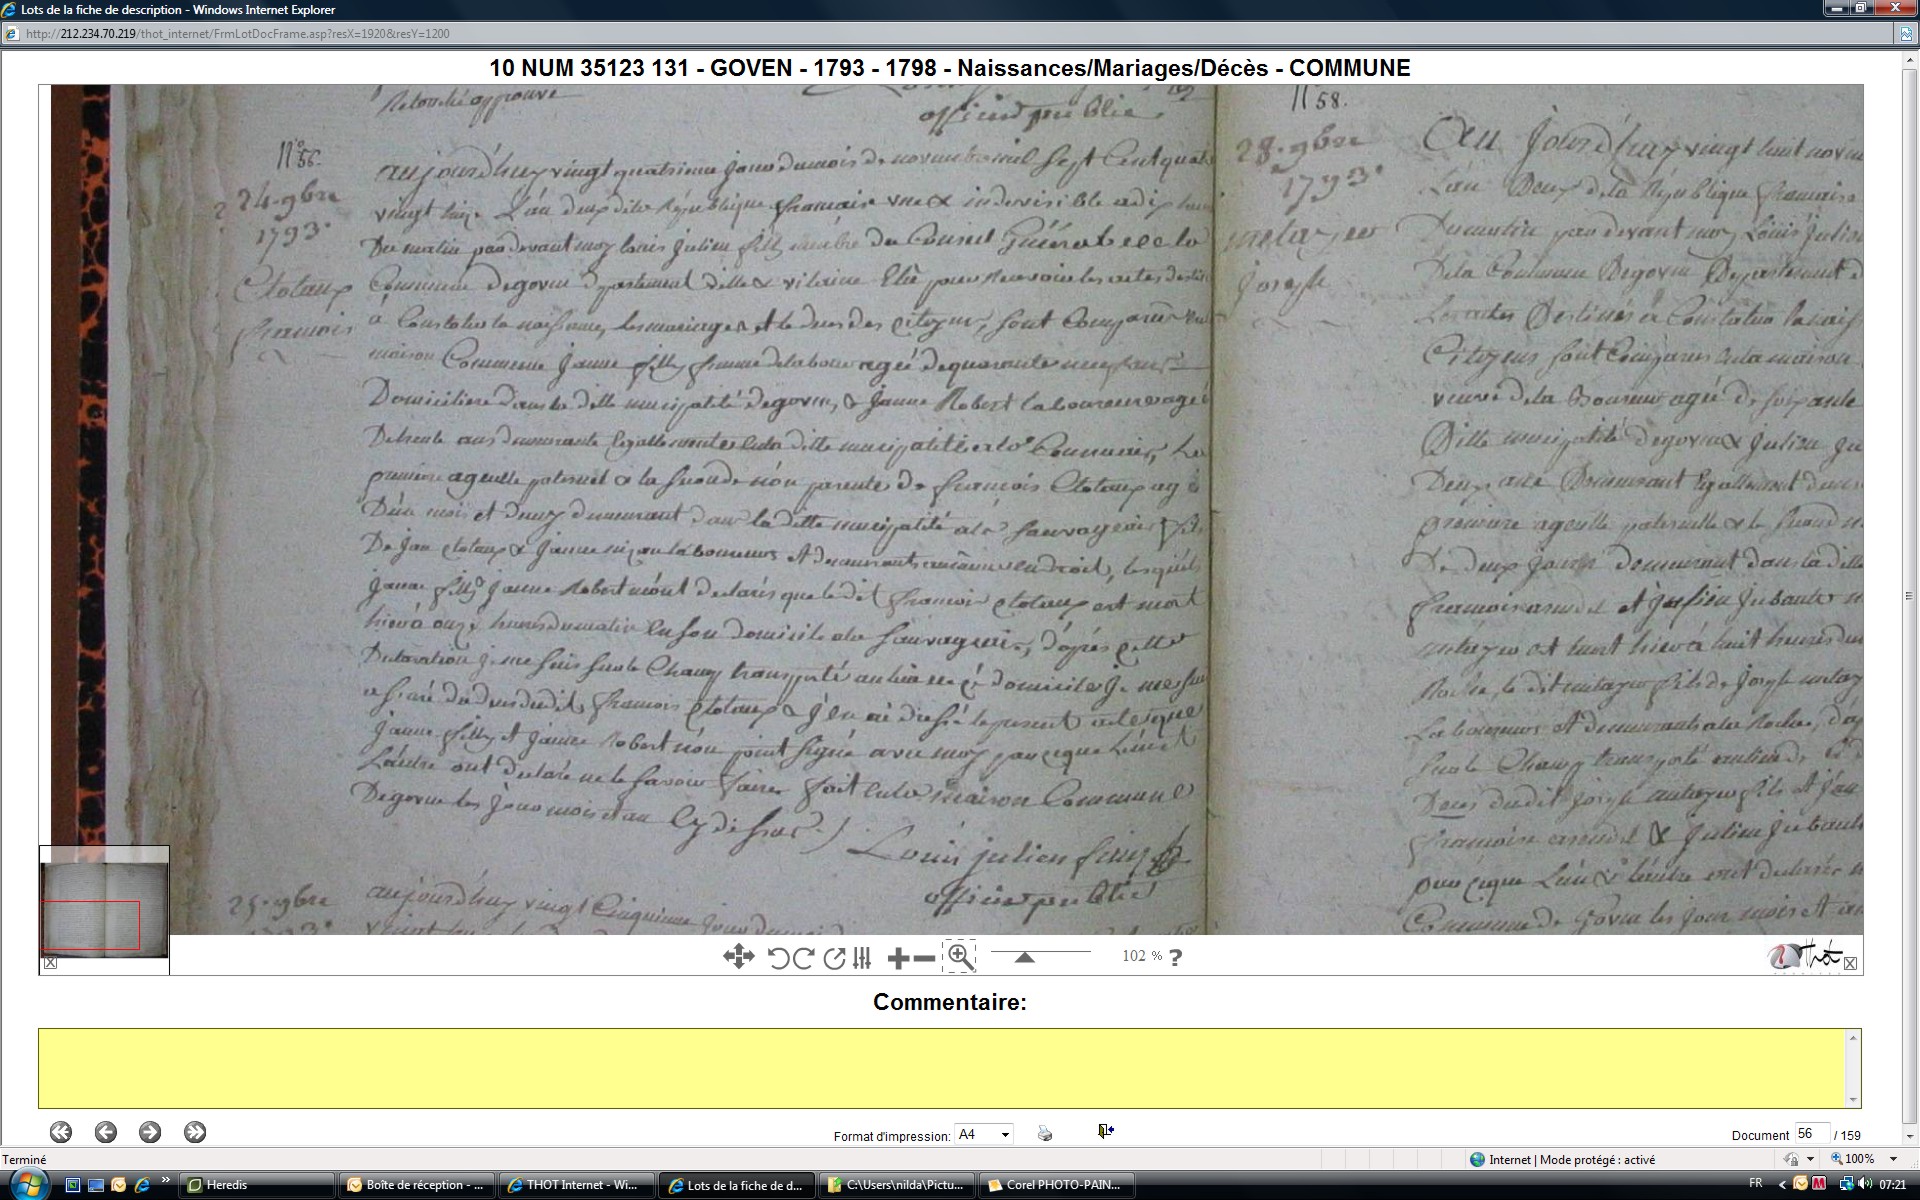 Lots de la fiche de description - Windows Internet Explorer
http://212.234.70.219/thot_internet/FrmLotDocFrame.asp?resX=1920&resY=1200
10 NUM 35123 131 - GOVEN - 1793 - 1798 - Naissances/Mariages/Décès - COMMUNE
officier public
N° 56.
24. 9bre
1793.
Clotaux
françois
aujourd'huy vingt quatrieme jour du mois de novembre mil sept cent quatre
vingt treize L'an deux de la République francaise une & indivisible a dix heures
Du matin par devant moy louis julien filly membre du Conseil Général de la
Commune de goven departement d'ille & vilaine Elü pour Recevoir les actes destinés
à Constater la naissance, les mariages et le deces des citoyens, sont Comparu en la
maison Commune janne filly femme de labour agée de quarante neuf ans
Domiciliere dans la ditte municipalité de goven, & janne Robert laboureure agée
De trente ans demeurante egallement en la ditte municipalité, La
premiere agenlle paternel & la seconde non parente de françois Clotaux agé
D'un mois et demy demeurant dans la ditte municipalité a la sauvagerais fils
De jan Clotaux & janne laboureurs et demeurants au même endroit, lesquels
janne filly janne Robert m'ont declarés que le dit françois Clotaux est mort
hier à onze heures du matin en son domicile a la sauvagerais, d'après cette
Declaration je me suis sur le Champ transporté au lieu de ce domicile je me suis
assuré du deces dudit françois Clotaux & j'en ai dressé le present acte que
janne filly et janne Robert n'on point signé avec moy par ce que l'une et
L'autre ont declaré ne le savoir faire fait en la maison Commune
De goven les jour mois et an cy dessus.
Louis julien filly
officier public
25. 9bre
aujourd'huy vingt Cinquieme jour du mois
N° 58.
28. 9bre
1793.
joseph
Au Jourd'huy vingt huit novem
L'an Deux de la République francaise
Du matin par devant moy Louis Julien
De la Commune De goven Departement d
Les actes Destinés à Constater la naiss
Citoyens sont Comparus en la maison
veuve de la agée de soixante
Ditte municipalité de goven & julien ju
Deux ans Demeurant Egallement dans
premiere agenlle paternelle & le second n
De deux jours demeurant dans la ditte
francois et julien jubault
est mort hier à huit heures du
Roche, le dit fils de joseph
Laboureurs et demeurants a la Roche, d'ap
sur le Champ transporté au lieu de
Deces du dit joseph fils et j'en
françoise & julien jubault
par ce que L'un & l'autre ont declaré n
Commune de Goven les jour mois et an
102 % ?
Thot
Commentaire:
Format d'impression: A4
Document 56 / 159
Terminé
Internet | Mode protégé : activé
100%
Heredis
Boîte de réception - ...
THOT Internet - Wi...
Lots de la fiche de d...
C:\Users\nilda\Pictu...
Corel PHOTO-PAIN...
FR
07:21